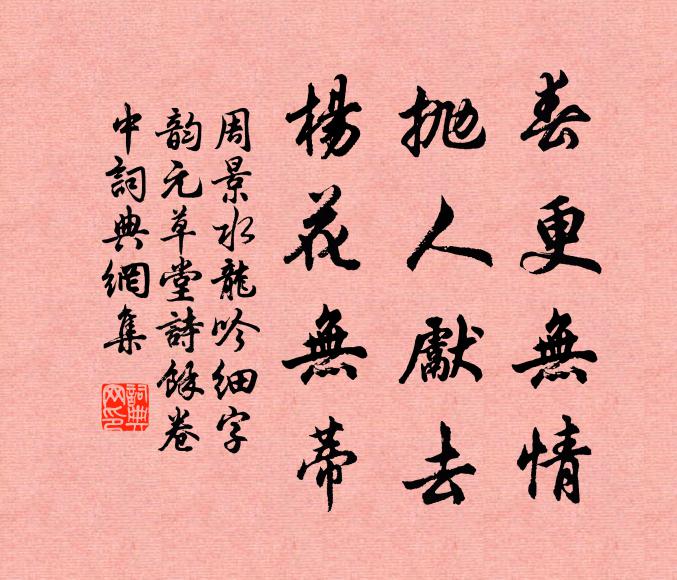 春更無情
拋人獻去
楊花無蒂
周景水龍吟細字
韵元草堂詩餘卷
中詞典網集
詞典
网印